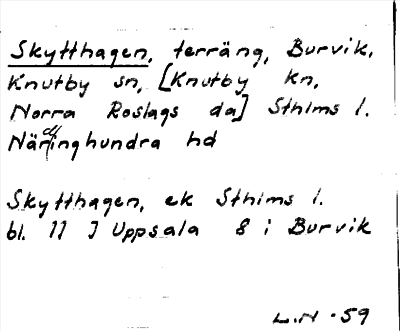 Skytthagen, terräng, Burvik,
Knutby sn, [Knutby kn,
Norra Roslags da] Sthlms l.
Närdinghundra hd
Skytthagen, ek Sthlms l.
bl. 11 I Uppsala 8 i Burvik
L.N -59